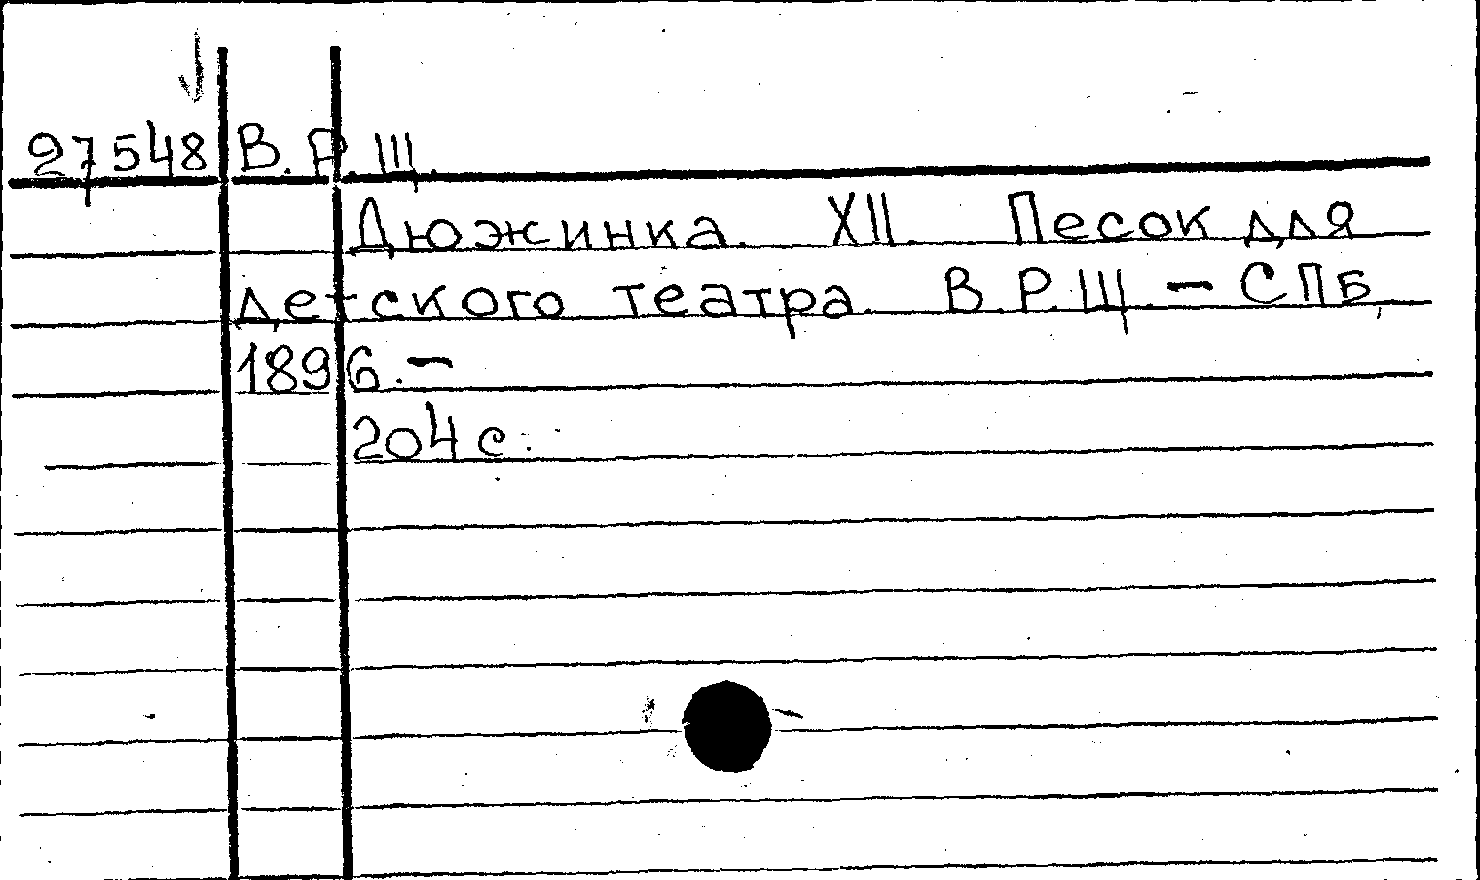 27548 В.Р.Щ.
Дюжинка. XII. Песок для
детского театра. В.Р.Щ. – СПБ,
1896. –
204 с.